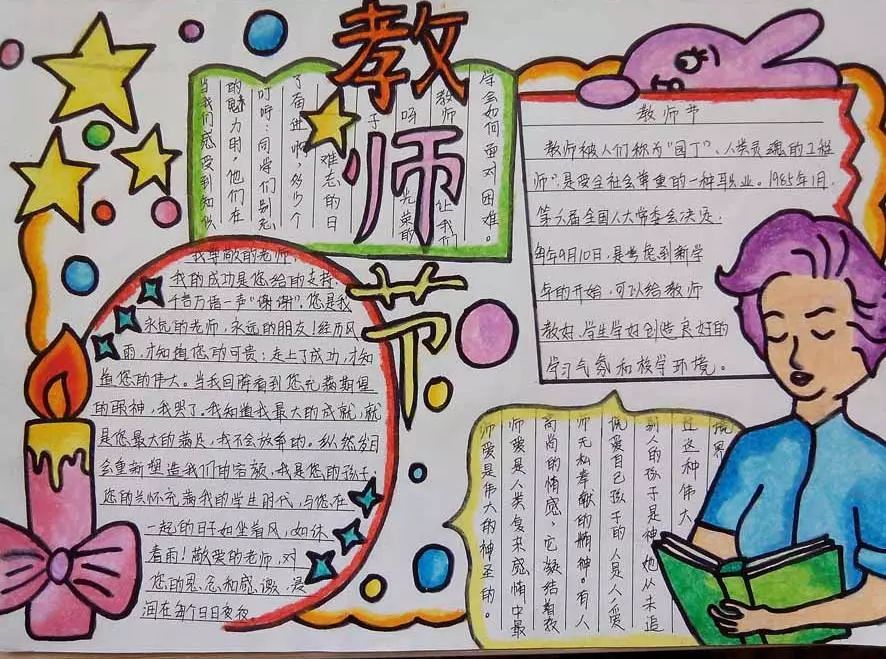 教师节
学会如何面对困难。
让我们
教师
光荣的
呀
子
难忘的日
了奋进啊,多少个
叮咛:同学们别忘
的魅力时,他们在
当我们感受到知识
教师节
教师被人们称为“园丁”、人类灵魂的工程
师”,是受全社会尊重的一种职业。1985年1月,
第六届全国人大常委会决定,
每年9月10日,是考虑到新学
年的开始,可以给教师
教好,学生学好创造良好的
学习气氛和校学环境。
我尊敬的老师
我的成功是您给的支持,
千言万语一声“谢谢”,您是我
永远的老师,永远的朋友!经历风
雨,才知道您的可贵;走上了成功,才知
道您的伟大。当我回眸看到您充满期望
的眼神,我哭了,我知道我最大的成就,就
是您最大的满足,我不会放弃的。纵然岁月
会重新塑造我们的容颜,我是您的孩子;
您的关怀充满我的学生时代,与您在
一起的日子如坐着风,如沐
着雨!敬爱的老师,对
您的思念和感激,浸
润在每个日日夜夜
过这种伟大
别人的孩子是神,她从未追
说爱自己孩子的人是人,爱
师无私奉献的精神。有人
高尚的情感,它凝结着教
师爱是人类复杂感情中最
师爱是伟大的神圣的。